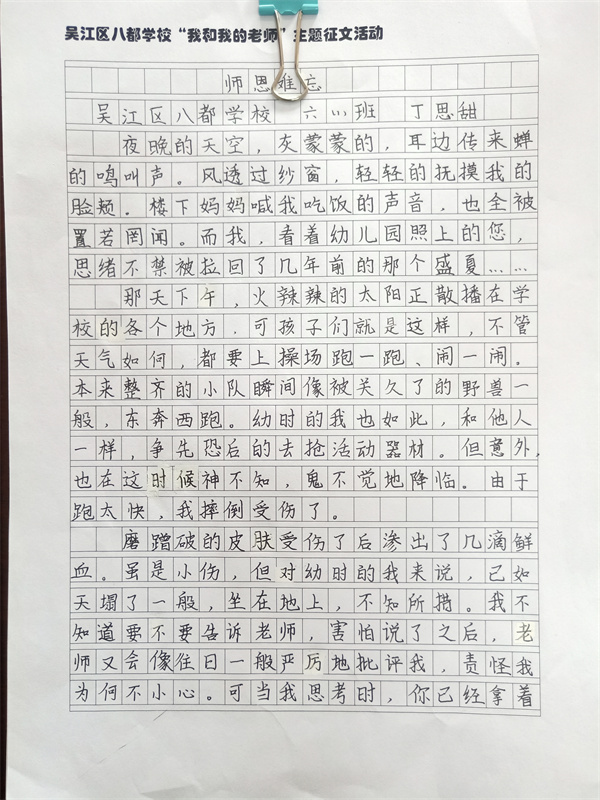 吴江区八都学校“我和我的老师”主题征文活动
师恩难忘
吴江区八都学校 六(1)班 丁思甜
夜晚的天空，灰蒙蒙的，耳边传来蝉
的鸣叫声。风透过纱窗，轻轻的抚摸我的
脸颊。楼下妈妈喊我吃饭的声音，也全被
置若罔闻。而我，看着幼儿园照上的您，
思绪不禁被拉回了几年前的那个盛夏……
那天下午，火辣辣的太阳正散播在学
校的各个地方，可孩子们就是这样，不管
天气如何，都要上操场跑一跑、闹一闹。
本来整齐的小队瞬间像被关久了的野兽一
般，东奔西跑。幼时的我也如此，和他人
一样，争先恐后的去抢活动器材。但意外，
也在这时候神不知，鬼不觉地降临。由于
跑太快，我摔倒受伤了。
磨蹭破的皮肤受伤了后渗出了几滴鲜
血。虽是小伤，但对幼时的我来说，已如
天塌了一般，坐在地上，不知所措。我不
知道要不要告诉老师，害怕说了之后，老
师又会像住日一般严厉地批评我，责怪我
为何不小心。可当我思考时，你已经拿着